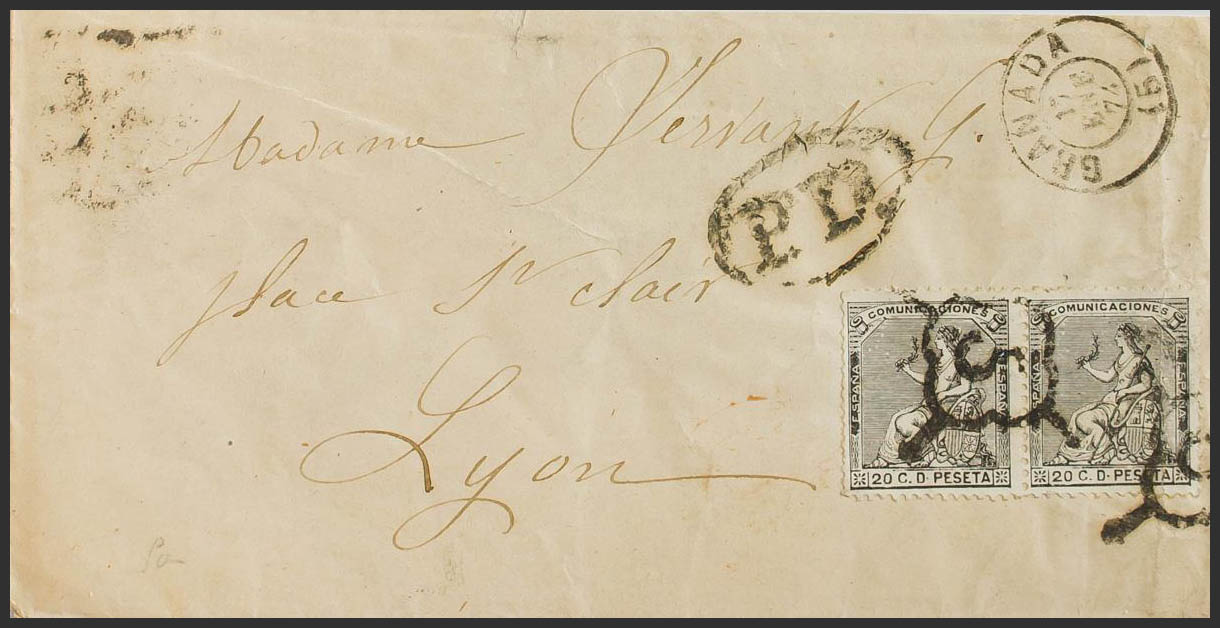 Madame Versant G.
place St clair
Lyon
GRANADA (5)
74
P.D.
COMUNICACIONES
ESPAÑA
ESPAÑA
20 C. D. PESETA
COMUNICACIONES
ESPAÑA
ESPAÑA
20 C. D. PESETA